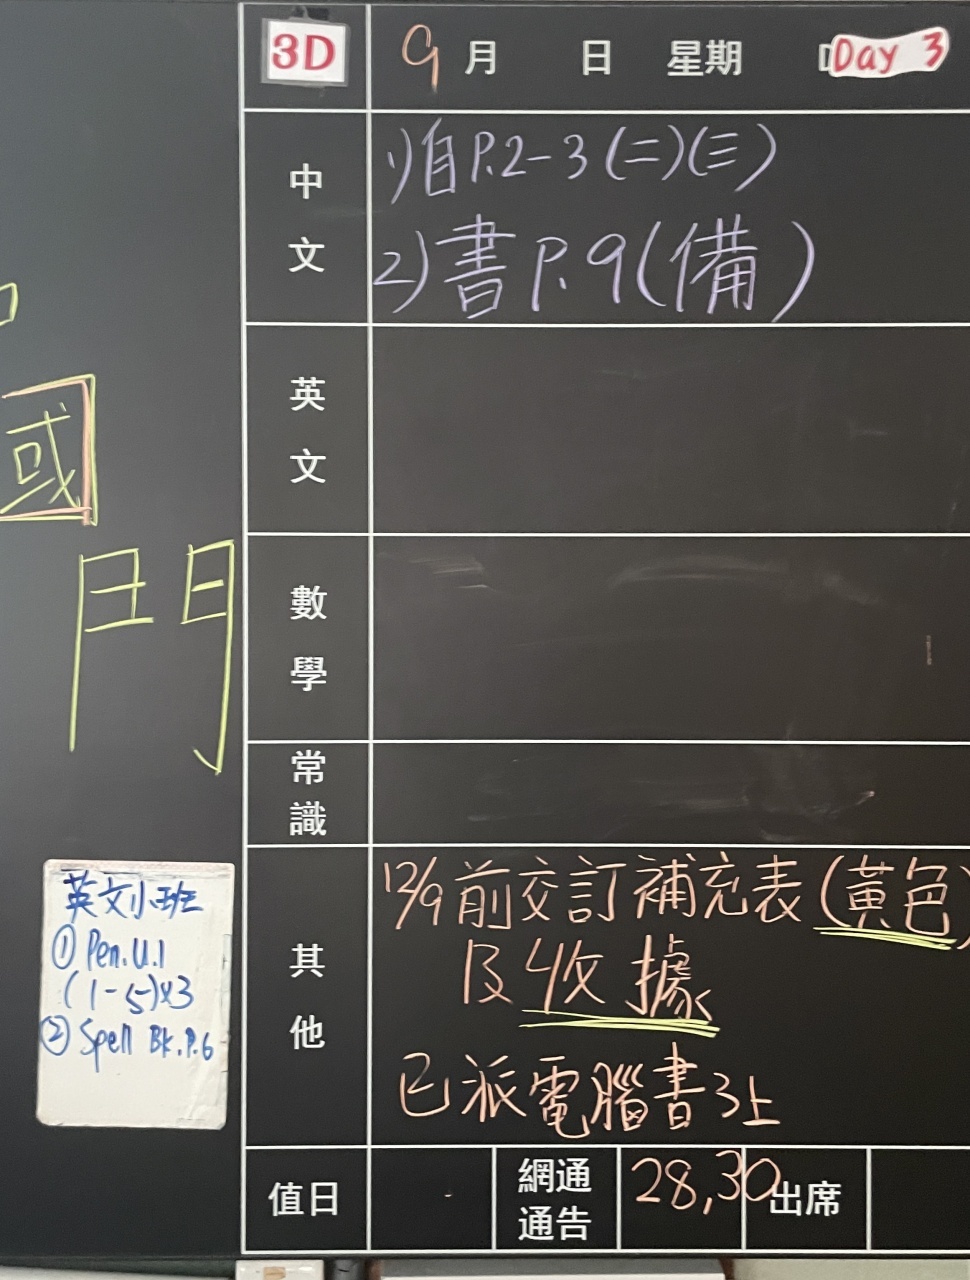 3D 9月 日 星期 Day 3
中文
1)自P.2-3(二)(三)
2)書P.9(備)
英文
數學
常識
其他
12/9前交訂補充表(黃色)
及收據
已派電腦書3上
值日
網通通告
28,30
出席
國
門
英文小班
① Pen.U.1
(1-5)x3
② Spell Bk.P.6